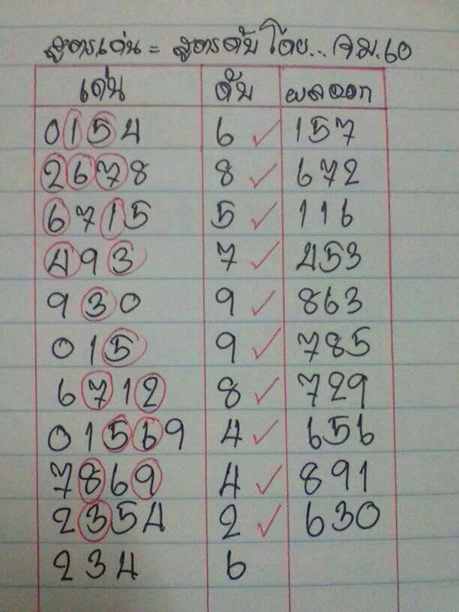 สูตรเด่น = สูตรดับ โดย... จม.60
เด่น ดับ ผลออก
0154 6 ✓ 157
2678 8 ✓ 672
6715 5 ✓ 116
493 7 ✓ 453
930 9 ✓ 863
015 9 ✓ 785
6712 8 ✓ 729
01569 4 ✓ 656
7869 4 ✓ 891
2354 2 ✓ 630
234 6